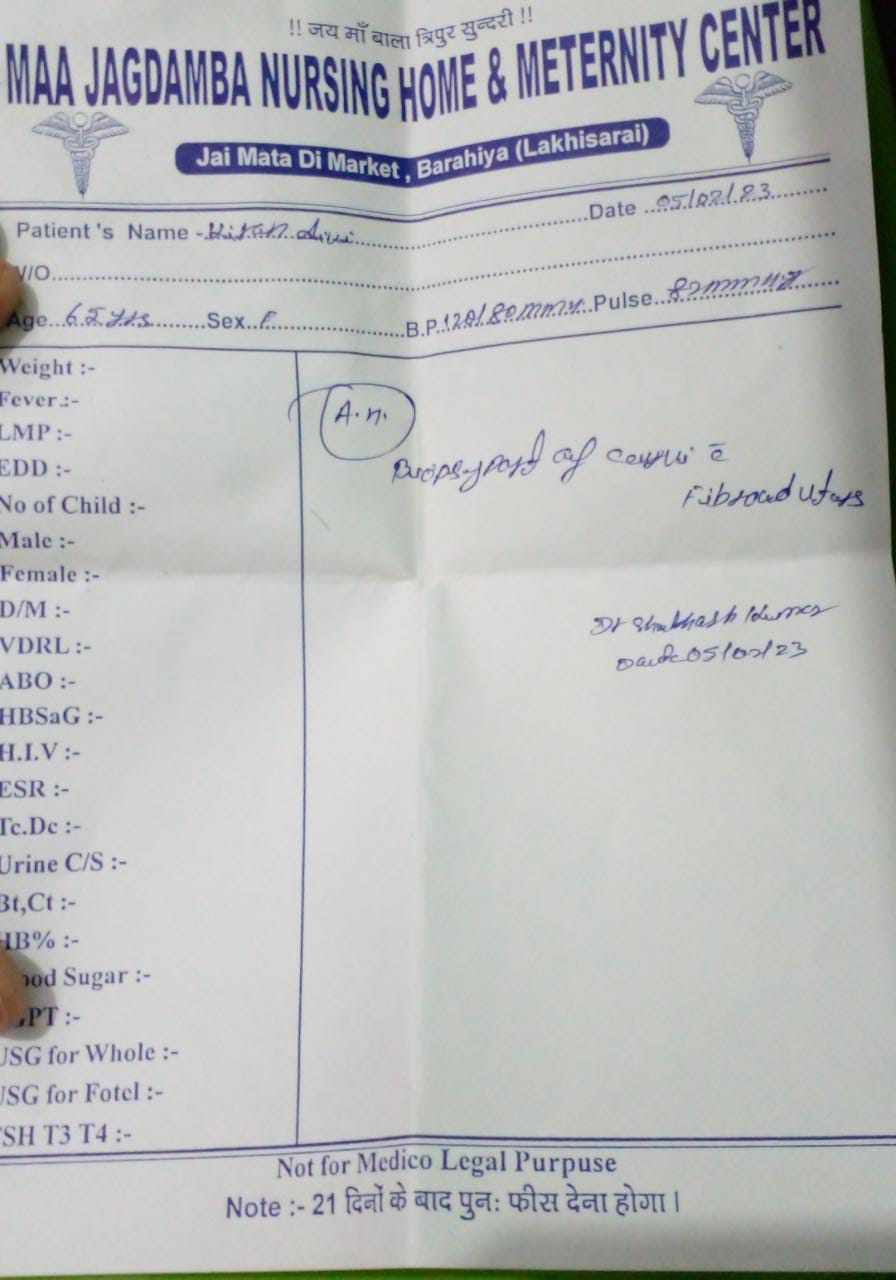 !! जय माँ बाला त्रिपुर सुन्दरी !!
MAA JAGDAMBA NURSING HOME & METERNITY CENTER
Jai Mata Di Market, Barahiya (Lakhisarai)
Date 05/02/23
Patient's Name -
W/O
Age 65 yrs Sex F B.P. 120/80 Pulse
Weight :-
Fever :-
LMP :-
EDD :-
No of Child :-
Male :-
Female :-
D/M :-
VDRL :-
ABO :-
HBSaG :-
H.I.V :-
ESR :-
Tc.Dc :-
Urine C/S :-
Bt,Ct :-
HB% :-
ood Sugar :-
PT :-
USG for Whole :-
USG for Fotel :-
TSH T3 T4 :-
A.n.
of
Fibroad
Dr Kumar
05/02/23
Not for Medico Legal Purpuse
Note :- 21 दिनों के बाद पुनः फीस देना होगा।